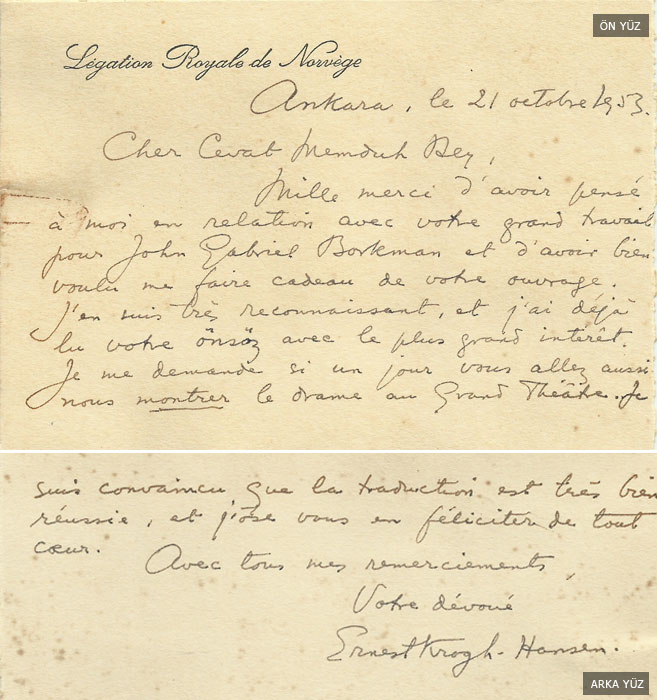 ÖN YÜZ
Légation Royale de Norvège
Ankara, le 21 octobre 1953.
Cher Cevat Memduh Bey,
Mille merci d'avoir pensé
à moi en relation avec votre grand travail
pour John Gabriel Borkman et d'avoir bien
voulu me faire cadeau de votre ouvrage.
J'en suis très reconnaissant, et j'ai déjà
lu votre önsöz avec le plus grand intérêt.
Je me demande si un jour vous allez aussi
nous montrer le drame au Grand Théâtre. Je
suis convaincu que la traduction est très bien
réussie, et j'ose vous en féliciter de tout
cœur.
Avec tous mes remerciements,
Votre dévoué
Ernest Krogh-Hansen.
ARKA YÜZ